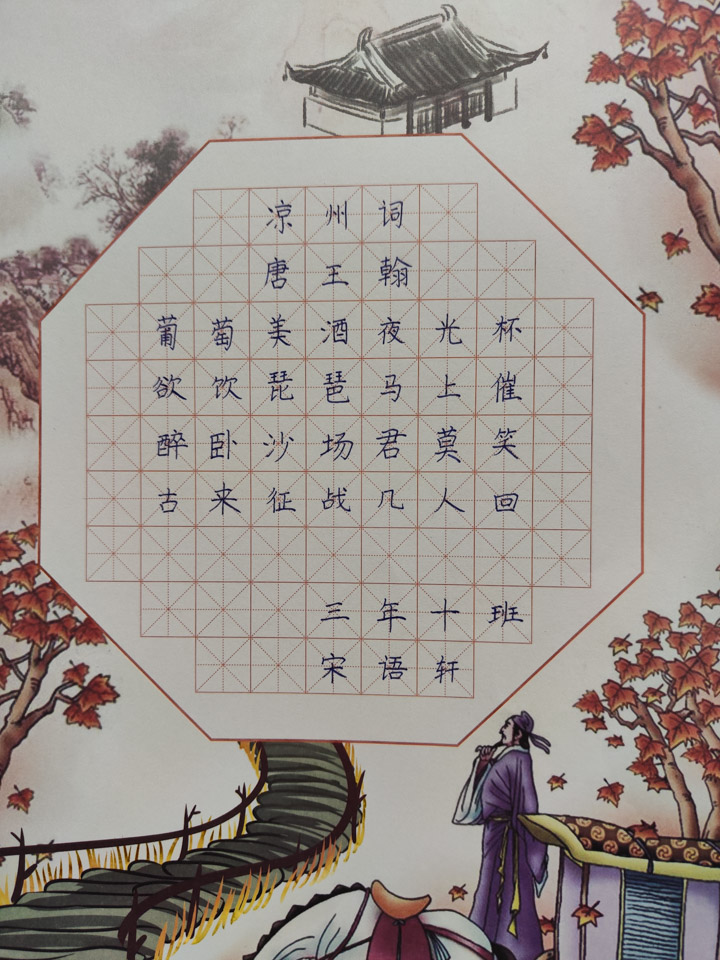 凉州词
唐王翰
葡萄美酒夜光杯
欲饮琵琶马上催
醉卧沙场君莫笑
古来征战几人回
三年十班
宋语轩